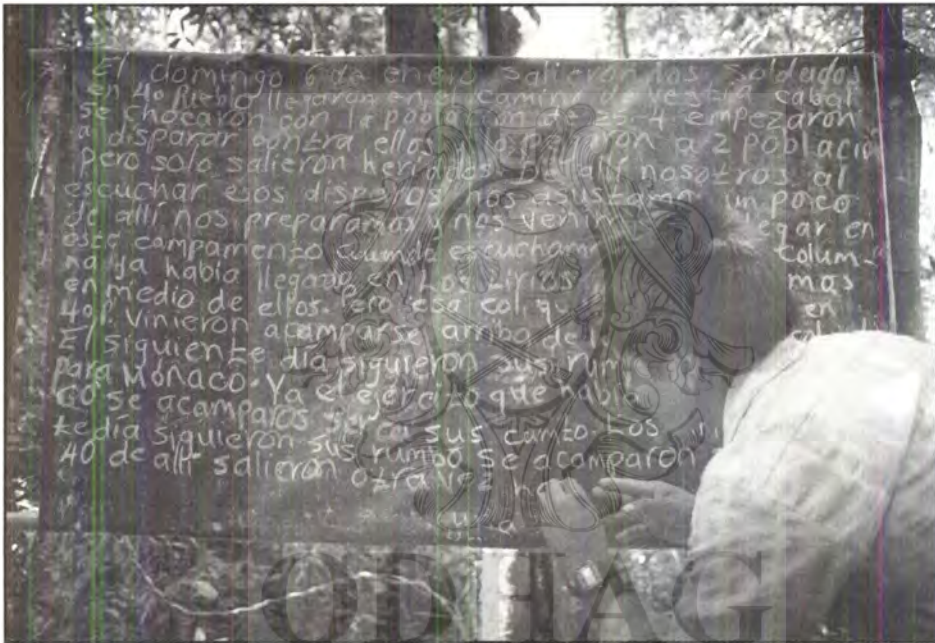 El domingo 6 de enero salieron los soldados
en 4º Pueblo llegaron en el camino
se chocaron con la población de 25. y empezaron
a disparar contra ellos a 2 població
pero solo salieron heridos allí nosotros al
escuchar esos disparos nos asustamos un poco
de allí nos preparamos nos venim egar en
este campamento cuando escucham colum-
na ya había llegado en Los Liros mas
en medio de ellos. pero esa col. qu en
4ºP. vinieron acamparse arriba de
El siguiente día siguieron sus rum
para Mónaco. Ya el ejercito que había
se acamparos serca sus camto. Los
te día siguieron sus rumbo se acamparon
40 de allí salieron otra vez
ODHAG